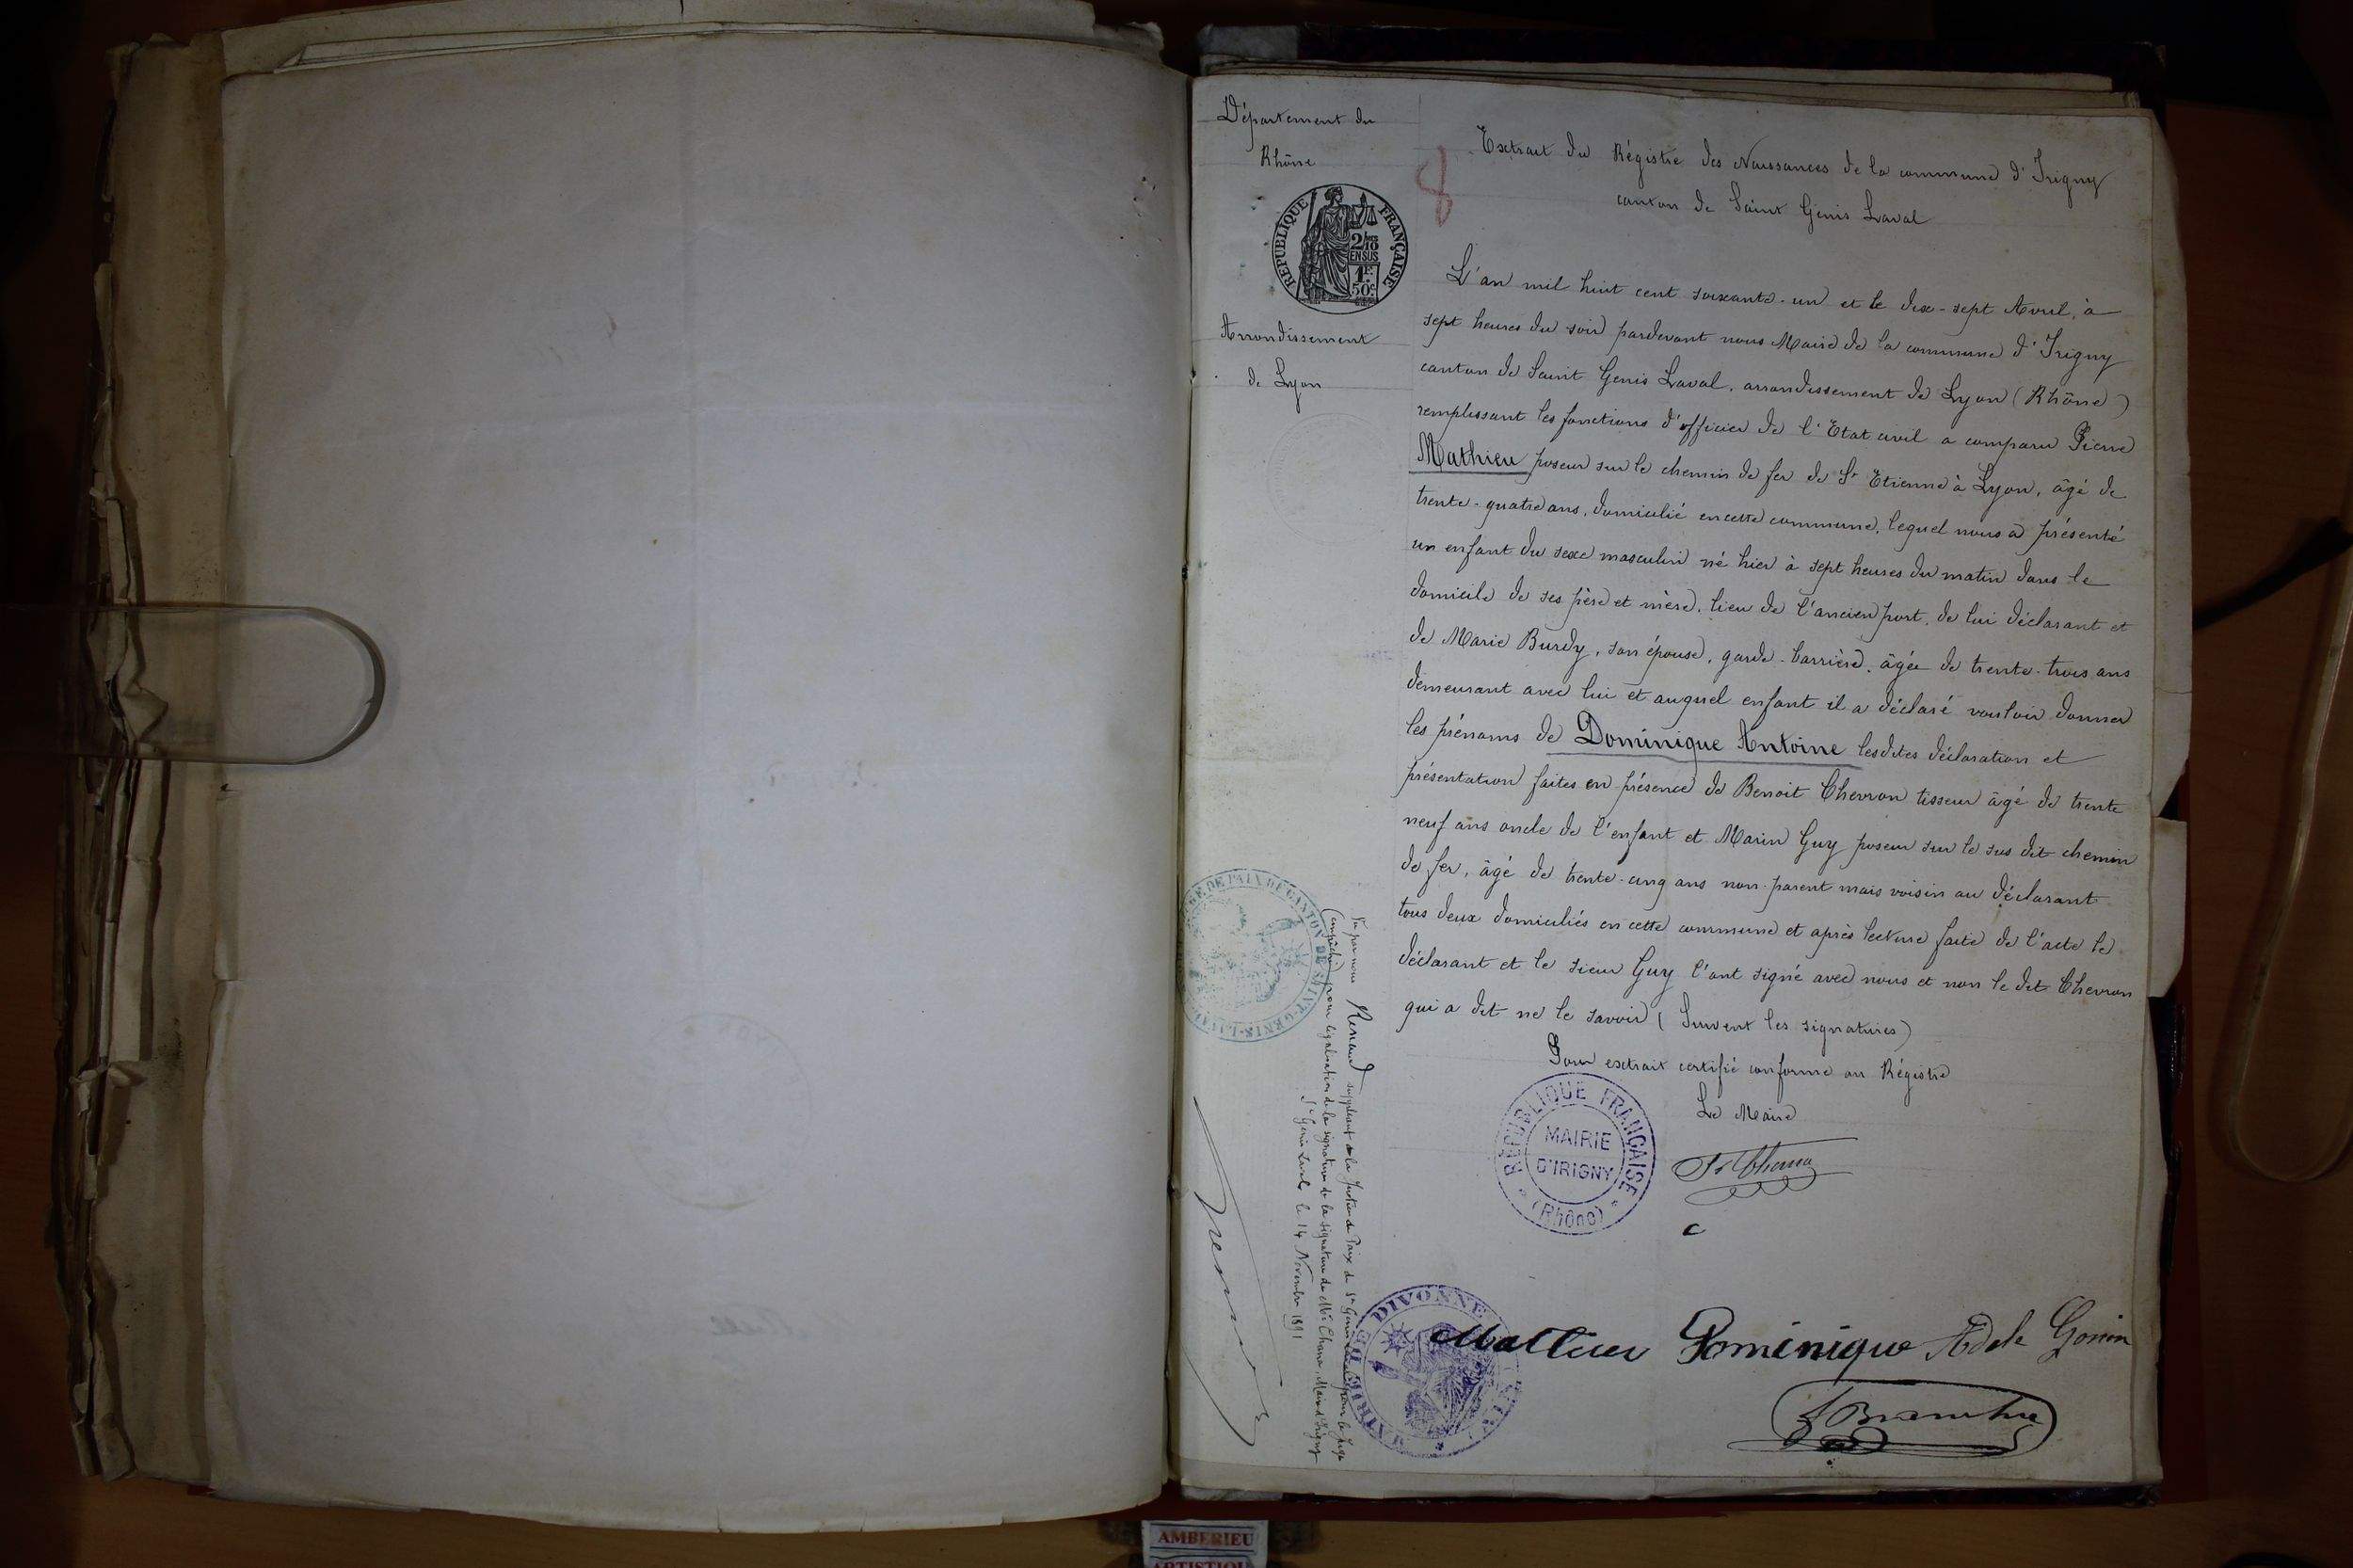 Département du
Rhône
REPUBLIQUE FRANÇAISE
2/10
EN SUS
1F
50c
Arrondissement
de Lyon
8
Extrait du Régistre des Naissances de la commune d'Irigny
canton de Saint Genis Laval
L'an mil huit cent soixante-un et le dix-sept Avril, à
sept heures du soir pardevant nous Maire de la commune d'Irigny
canton de Saint Genis Laval, arrondissement de Lyon (Rhône)
remplissant les fonctions d'officier de l'Etat civil a comparu Pierre
Mathieu poseur sur le chemin de fer de St Etienne à Lyon, âgé de
trente-quatre ans, domicilié en cette commune, lequel nous a présenté
un enfant du sexe masculin né hier à sept heures du matin dans le
domicile de ses père et mère, lieu de l'ancien port, de lui déclarant et
de Marie Burdy, son épouse, garde-barrière, âgée de trente-trois ans
demeurant avec lui et auquel enfant il a déclaré vouloir donner
les prénoms de Dominique Antoine lesdites déclaration et
présentation faites en présence de Benoit Chevron tisseur âgé de trente
neuf ans oncle de l'enfant et Marin Guy poseur sur le sus dit chemin
de fer, âgé de trente-cinq ans non parent mais voisin au déclarant
tous deux domiciliés en cette commune et après lecture faite de l'acte le
déclarant et le sieur Guy l'ont signé avec nous et non le dit Chevron
qui a dit ne le savoir (Suivent les signatures)
Pour extrait certifié conforme au Régistre
Le Maire
REPUBLIQUE FRANÇAISE
MAIRIE
D'IRIGNY
(Rhône)
DE PAIX DU CANTON DE SAINT-GENIS-LAVAL
Vu par nous Renaud suppléant de la Justice de Paix de St Genis Laval pour le Juge
(empêché) pour légalisation de la signature de la signature de Mr Chana, Maire d'Irigny
St Genis Laval le 14 Novembre 1891
Renaud
MAIRIE DE DIVONNE
Mathieu Dominique Adele Gonin
AMBERIEU
ARTISTIQU